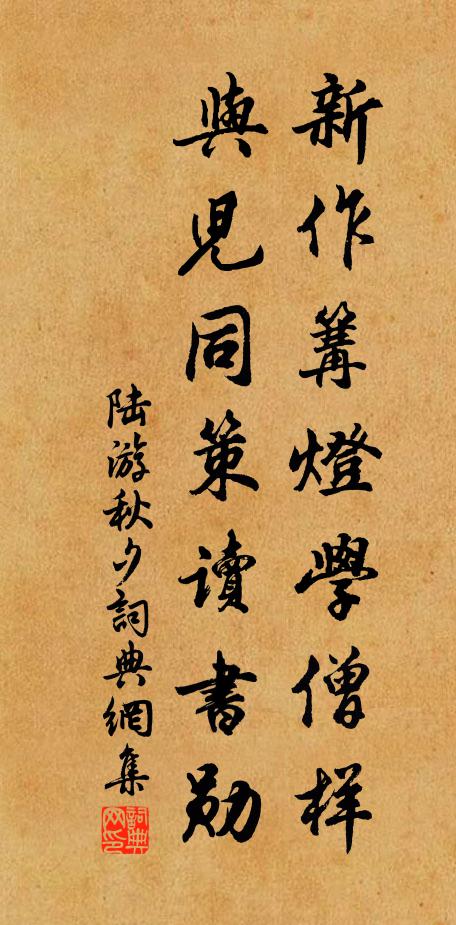 新作篝燈學僧样
與兒同策讀書勋
陆游秋夕詞典網集
詞典网印